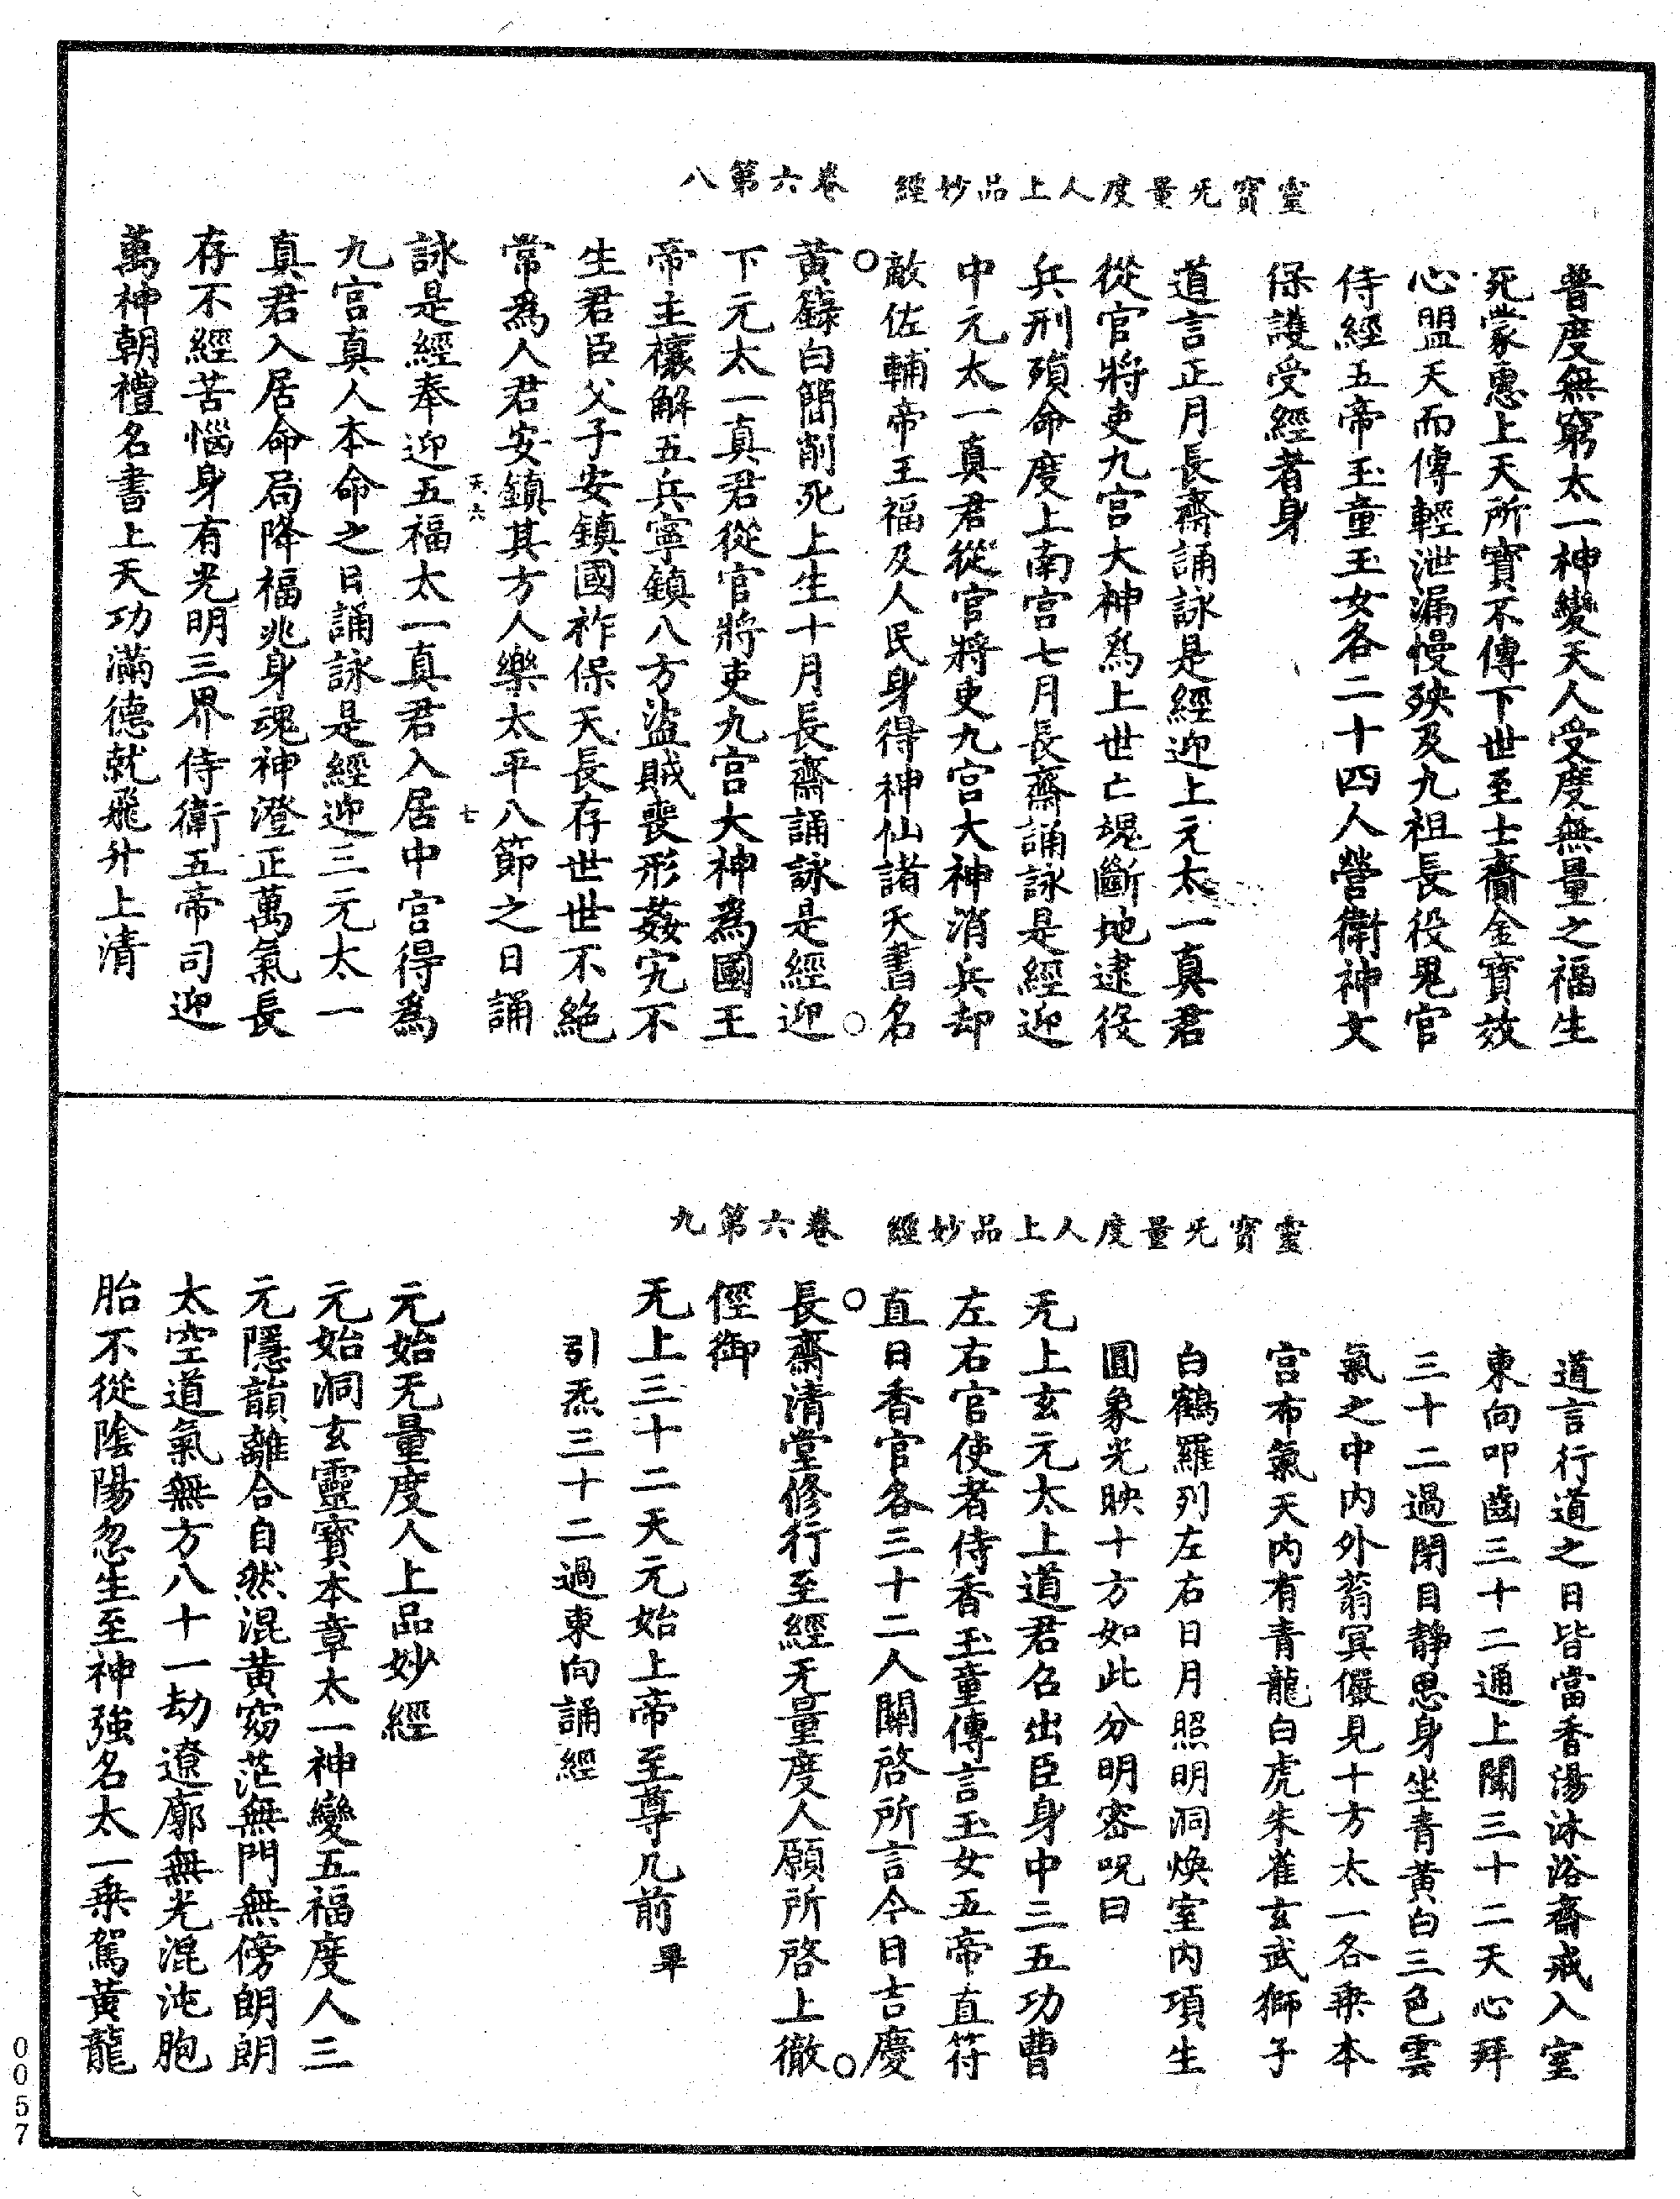 靈寶无量度人上品妙經　卷六第八
普度無窮太一神變天人受度無量之福生
死蒙惠上天所寶不傳下世至士齎金寶效
心盟天而傳輕泄漏慢殃及九祖長役鬼官
侍經五帝玉童玉女各二十四人營衛神文
保護受經者身
道言正月長齋誦詠是經迎上元太一真君
從官將吏九宮大神爲上世亡魂斷地逮役
兵刑殞命度上南宮七月長齋誦詠是經迎
中元太一真君從官將吏九宮大神消兵却
敵佐輔帝王福及人民身得神仙諸天書名
黃籙白簡削死上生十月長齋誦詠是經迎
下元太一真君從官將吏九宮大神爲國王
帝主禳解五兵寧鎮八方盜賊喪形姦宄不
生君臣父子安鎮國祚保天長存世世不絕
常爲人君安鎮其方人樂太平八節之日誦
天六　七
詠是經奉迎五福太一真君入居中宮得爲
九宮真人本命之日誦詠是經迎三元太一
真君入居命局降福兆身魂神澄正萬氣長
存不經苦惱身有光明三界侍衛五帝司迎
萬神朝禮名書上天功滿德就飛升上清
靈寶无量度人上品妙經　卷六第九
道言行道之日皆當香湯沐浴齋戒入室
東向叩齒三十二通上聞三十二天心拜
三十二過閉目靜思身坐青黃白三色雲
氣之中内外蓊冥儼見十方太一各乘本
宮布氣天内有青龍白虎朱雀玄武獅子
白鶴羅列左右日月照明洞煥室内項生
圓象光映十方如此分明密呪曰
无上玄元太上道君召出臣身中三五功曹
左右官使者侍香玉童傳言玉女五帝直符
直日香官各三十二人關啓所言今日吉慶
長齋清堂修行至經无量度人願所啓上徹
徑御
无上三十二天元始上帝至尊几前畢
引炁三十二過東向誦經
元始无量度人上品妙經
元始洞玄靈寶本章太一神變五福度人三
元隱韻離合自然混黃窈茫無門無傍朗朗
太空道氣無方八十一劫遼廓無光混沌胞
胎不從陰陽忽生至神強名太一乘駕黃龍
0057